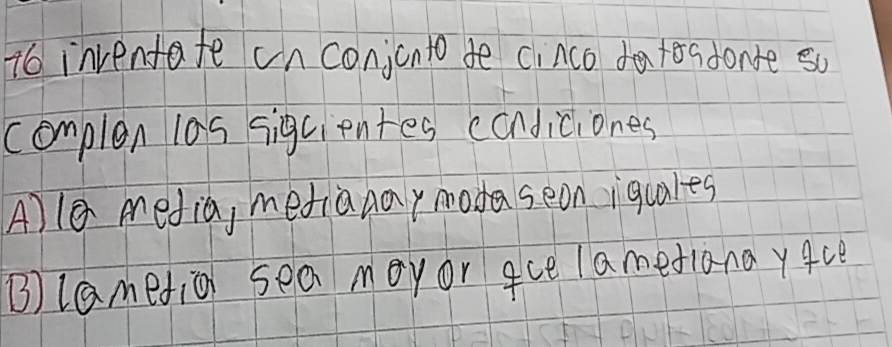 16 inventate un conjunto de cinco datos donde su
complan las siguientes condiciones
A) la media, mediana y moda sean iguales
B) la media sea mayor que la mediana y que